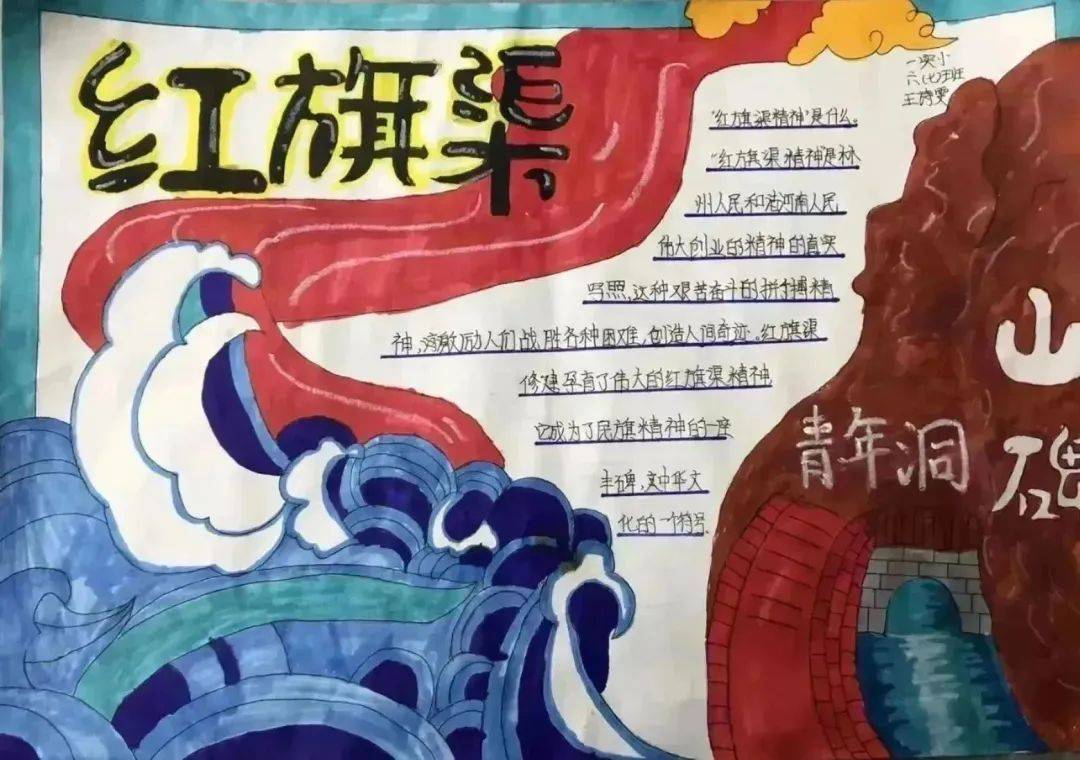 红旗渠
一实小
六(七)班
王诗雯
"红旗渠精神"是什么。
"红旗渠精神"是林
州人民和
河南人民
伟大创业的精神的真实
写照,这种艰苦奋斗的拼搏精
神,
激励人们战胜各种困难,创造人间奇迹。红旗渠
修建孕育了伟大的红旗渠精神
它成为了民族精神的一座
丰碑,
中华文
化的一个符号.
青年洞
山